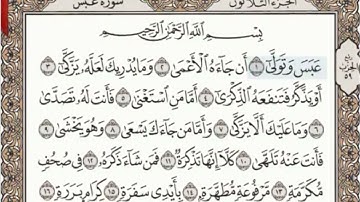 الجزء الثلاثون سورة عبس
بِسْمِ ٱللَّهِ ٱلرَّحْمَٰنِ ٱلرَّحِيمِ
عَبَسَ وَتَوَلَّىٰٓ ١ أَن جَآءَهُ ٱلْأَعْمَىٰ ٢ وَمَا يُدْرِيكَ لَعَلَّهُۥ يَزَّكَّىٰٓ ٣
أَوْ يَذَّكَّرُ فَتَنفَعَهُ ٱلذِّكْرَىٰٓ ٤ أَمَّا مَنِ ٱسْتَغْنَىٰ ٥ فَأَنتَ لَهُۥ تَصَدَّىٰ
٦ وَمَا عَلَيْكَ أَلَّا يَزَّكَّىٰ ٧ وَأَمَّا مَن جَآءَكَ يَسْعَىٰ ٨ وَهُوَ يَخْشَىٰ ٩
فَأَنتَ عَنْهُ تَلَهَّىٰ ١٠ كَلَّآ إِنَّهَا تَذْكِرَةٌ ١١ فَمَن شَآءَ ذَكَرَهُۥ ١٢ فِى صُحُفٍ
مُّكَرَّمَةٍ ١٣ مَّرْفُوعَةٍ مُّطَهَّرَةٍۭ ١٤ بِأَيْدِى سَفَرَةٍ ١٥ كِرَامٍۭ بَرَرَةٍ ١٦
الحزب
٥٩